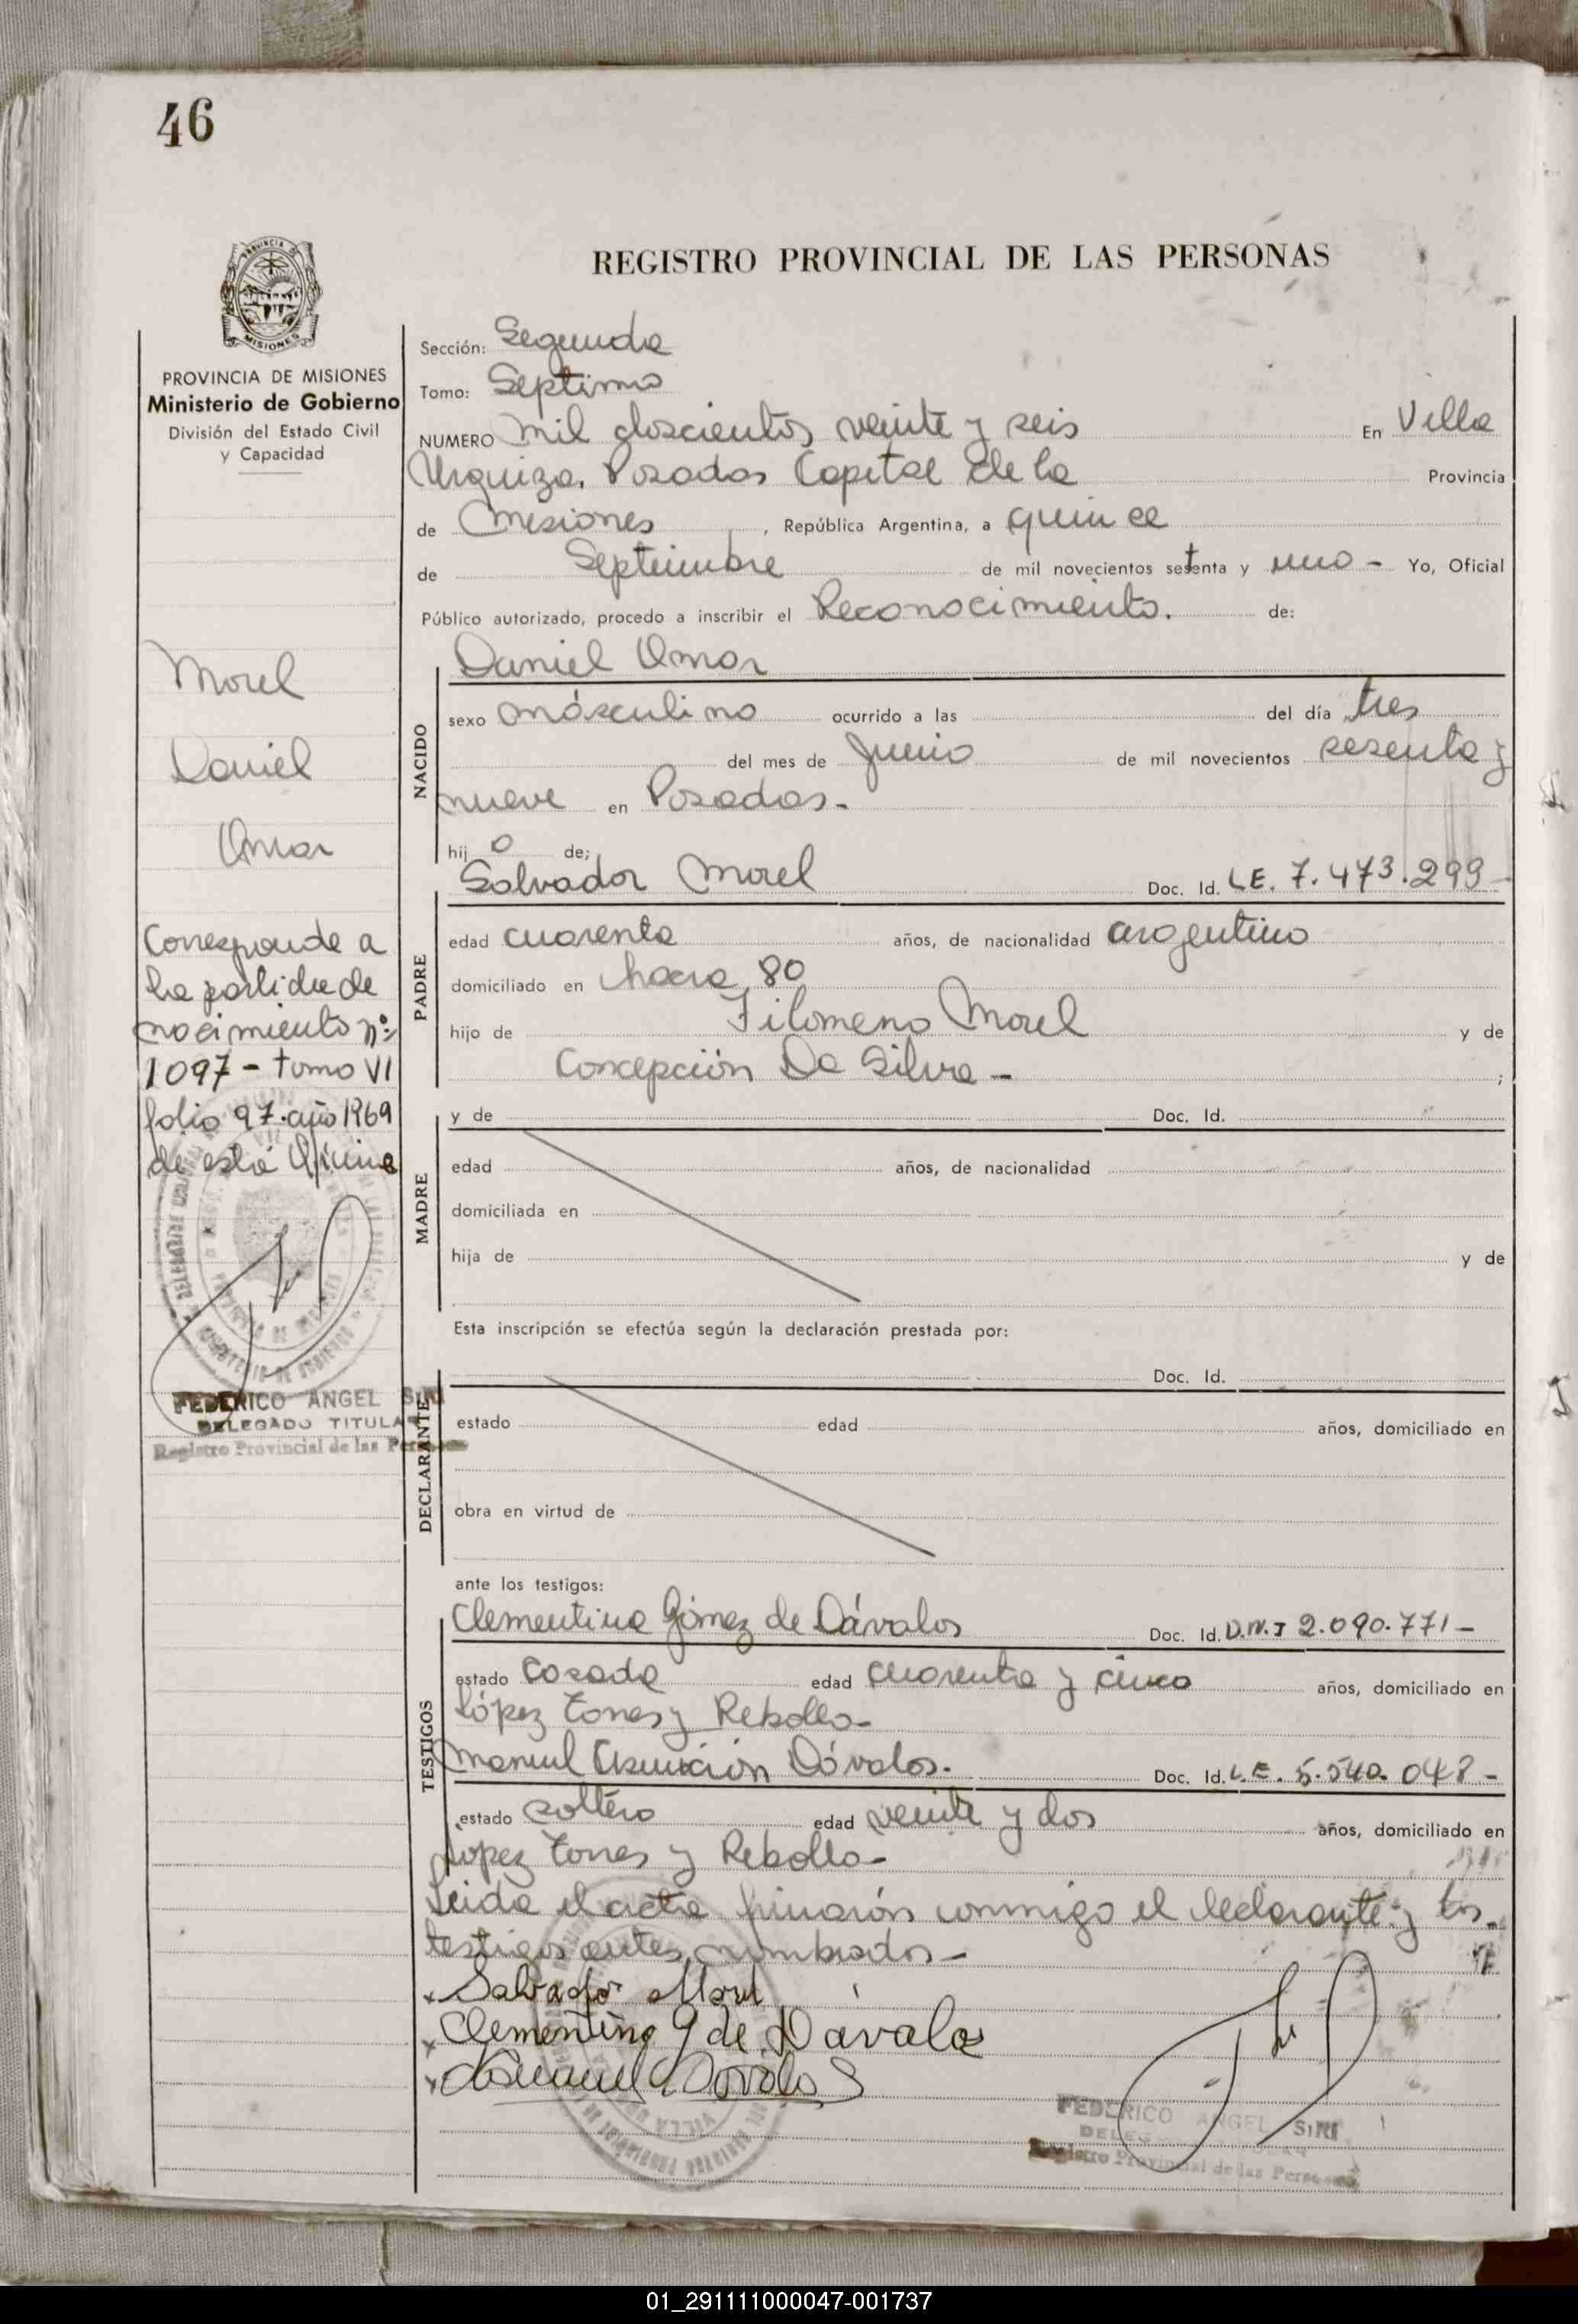 46
REGISTRO PROVINCIAL DE LAS PERSONAS
MISIONES
PROVINCIA DE MISIONES
Ministerio de Gobierno
División del Estado Civil
y Capacidad
Morel
Daniel
Omar
Corresponde a
la partida de
nacimiento nº:
1097 - tomo VI
folio 97. año 1969
de esta Oficina
FEDERICO ANGEL SIRI
DELEGADO TITULA
Registro Provincial de las Personas
Sección: Segunda
Tomo: Septimo
NUMERO mil doscientos veinte y seis En Villa
Urquiza. Posadas Capital de la Provincia
de Misiones, República Argentina, a quince
de Septiembre de mil novecientos setenta y uno - Yo, Oficial
Público autorizado, procedo a inscribir el Reconocimiento. de:
NACIDO
Daniel Omar
sexo másculino ocurrido a las del día tres
del mes de Junio de mil novecientos sesenta y
nueve en Posadas -
hijo de;
PADRE
Salvador Morel Doc. Id. LE. 7.473.299 -
edad cuarenta años, de nacionalidad argentino
domiciliado en chacra 80
hijo de Filomeno Morel y de
Concepción Da Silva - ;
MADRE
y de Doc. Id.
edad años, de nacionalidad
domiciliada en
hija de y de
Esta inscripción se efectúa según la declaración prestada por:
DECLARANTE
Doc. Id.
estado edad años, domiciliado en
obra en virtud de
ante los testigos:
TESTIGOS
Clementina Gómez de Dávalos Doc. Id. D.N.I 2.090.771 -
estado casada edad cuarenta y cinco años, domiciliado en
López Torres y Rebollo -
Manuel Asunción Dávalos. Doc. Id. L.E. 5.540.048 -
estado soltero edad veinte y dos años, domiciliado en
López Torres y Rebollo -
Leida el acta firmarón conmigo el declarante y los
testigos antes nombrados -
x Salvador Morel
x Clementina G de Dávalos
x Manuel Dovalos
FEDERICO ANGEL SIRI
Registro Provincial de las Personas
01_291111000047-001737